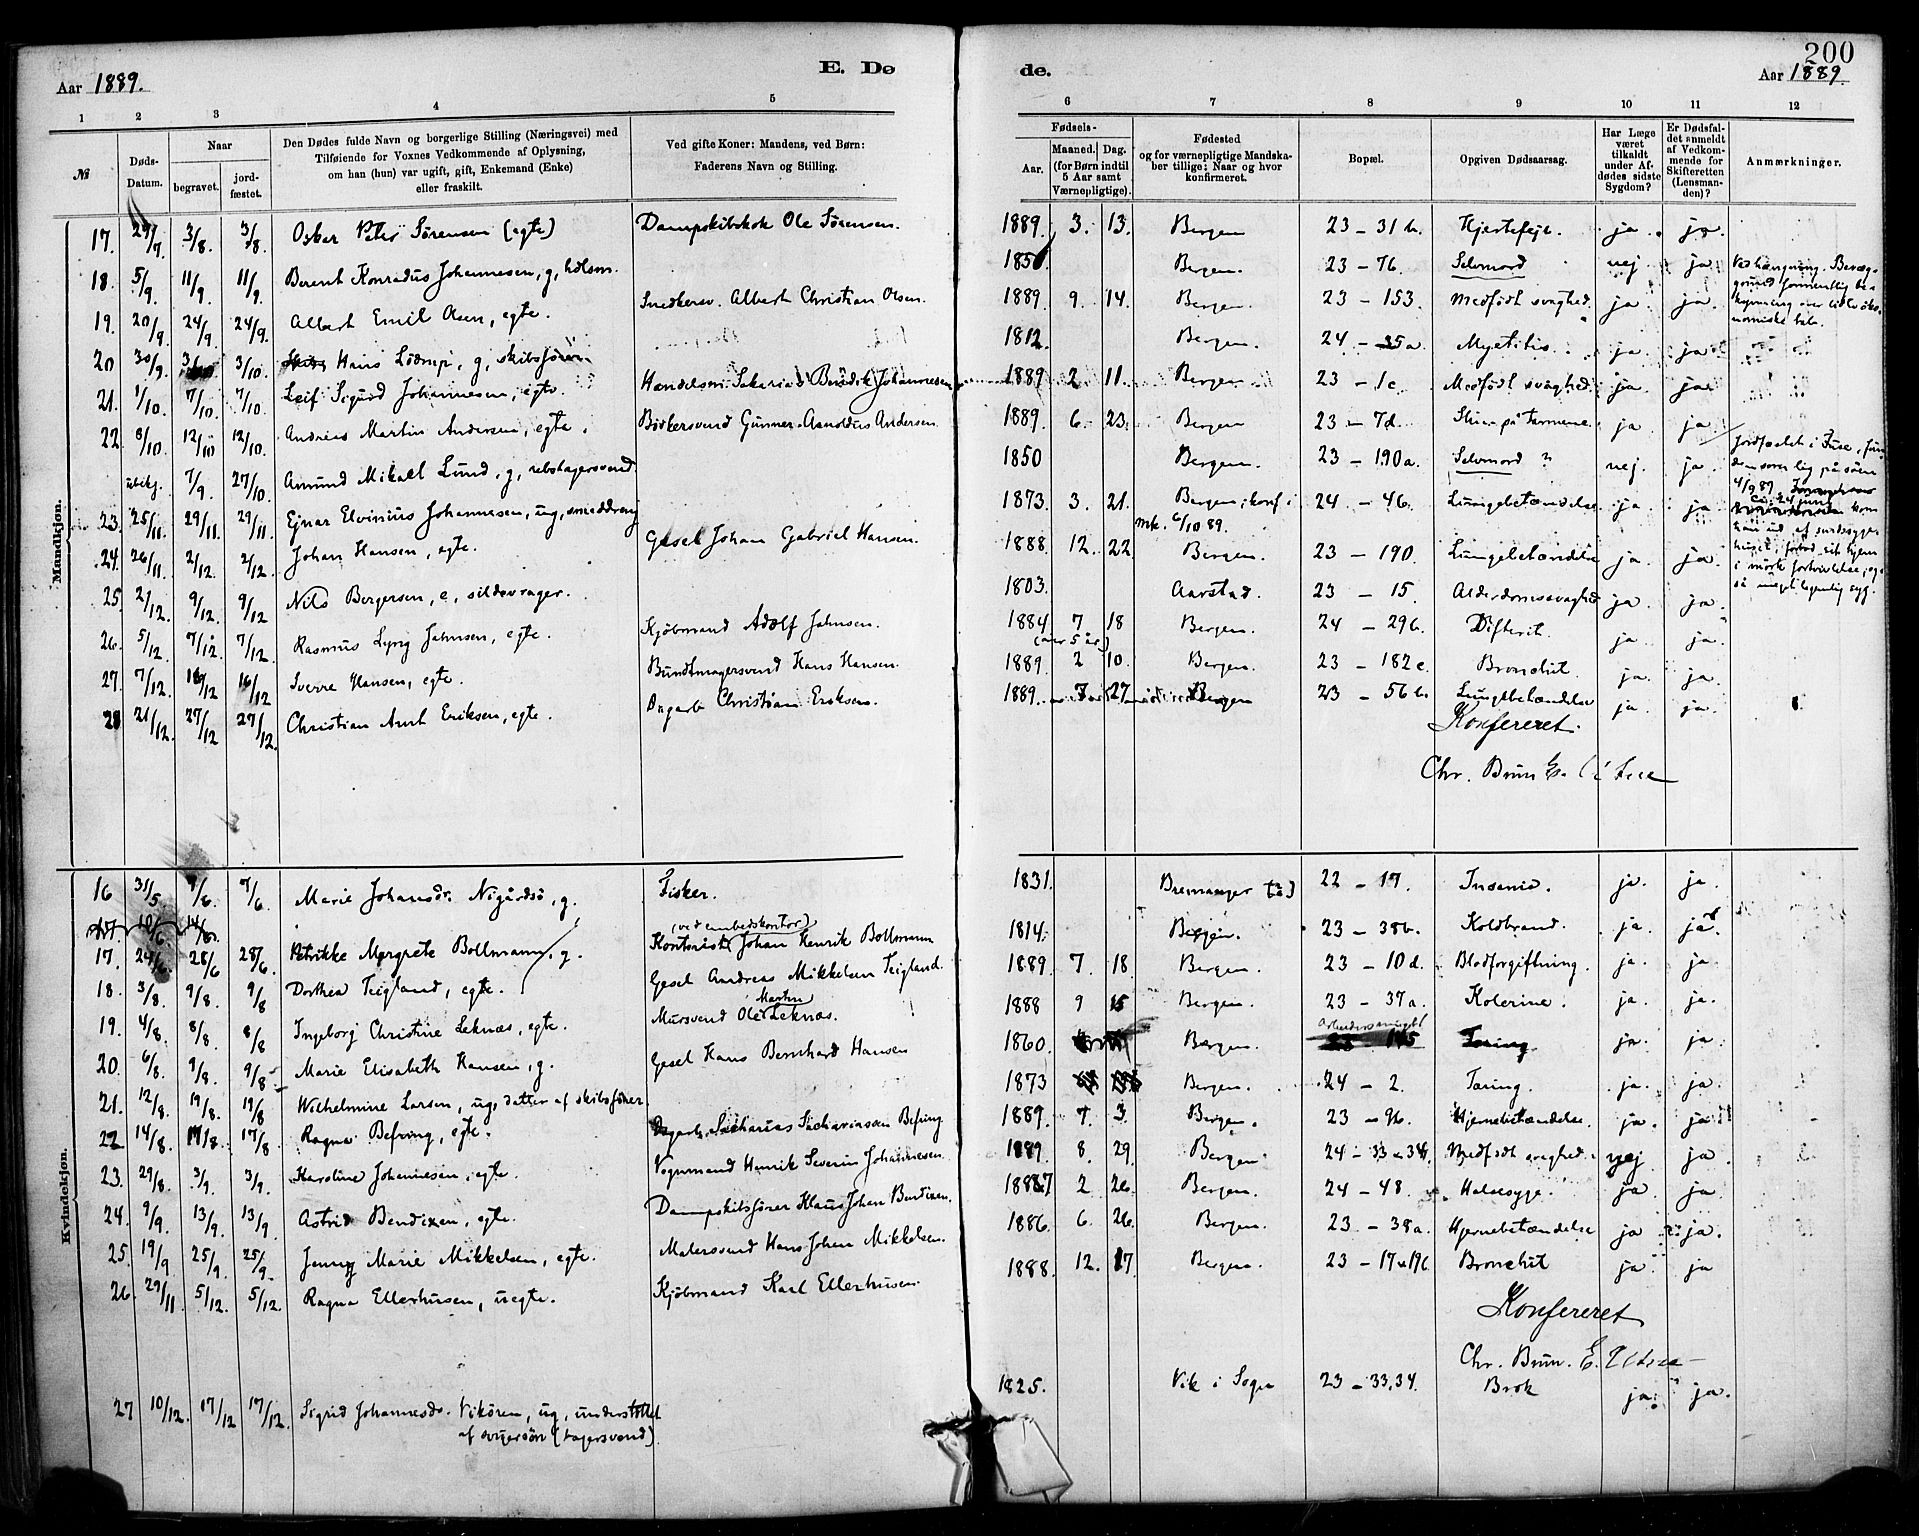 200
Aar 1889.
E. Dø
de.
Aar 1889.
1 2 3 4 5 6 7 8 9 10 11 12
№
Døds-Datum.
Naar
begravet.
jord-fæstet.
Den Dødes fulde Navn og borgerlige Stilling (Næringsvei) med
Tilføiende for Voxnes Vedkommende af Oplysning,
om han (hun) var ugift, gift, Enkemand (Enke)
eller fraskilt.
Ved gifte Koner: Mandens, ved Børn:
Faderens Navn og Stilling.
Fødsels-
Aar.
Maaned. Dag.
(for Børn indtil
5 Aar samt
Værnepligtige).
Fødested
og for værnepligtige Mandska-
ber tillige: Naar og hvor
konfirmeret.
Bopæl.
Opgiven Dødsaarsag.
Har Læge
været
tilkaldt
under Af-
dødes sidste
Sygdom?
Er Dødsfal-
det anmeldt
af Vedkom-
mende for
Skifteretten
(Lensman-
den)?
Anmærkninger.
Mandkjøn.
17. 27/7. 3/8. 3/8. Oskar Peter Sørensen (egte) Dampskibskok Ole Sørensen. 1889. 3. 13. Bergen 23 - 31 b. Hjertefejl. ja. ja.
18. 5/9. 11/9. 11/9. Berent Konradus Johannesen, g, Bergen. 23 - 76. Selvmord nej ja Ved hængning.
19. 20/9. 24/9. 24/9. Albert Emil Olsen, egte. Snedkersv. Albert Christian Olsen. 1889. 9. 14. Bergen. 23 - 153. Medfødt svaghed. ja. ja.
20 30/9. 3/10. Hans g, skibsfører 1812. Bergen. 24 - 35a. ja. ja.
21. 1/10. 7/10. 7/10. Leif Sigurd Johannesen, egte. Handelsm. Sakarias Bendik Johannesen 1889 2. 11. Bergen 23 - 1c. Medfødt svaghed. ja. ja.
22. 8/10. 12/10 12/10. Andreas Martin Andersen, egte. Bødkersvend Gunner Arnoldus Andersen. 1889. 6. 23. Bergen 23 - 7d. Slim på tarmene. ja ja
ubekj. 7/9. 27/10. Amund Mikael Lund, g, rebslagersvend. 1850 Bergen. 23 - 190 a. Selvmord ? nej. ja. Jordfæstet i Fuse,
23. 25/11. 29/11. 29/11. Ejnar Elvinius Johannesen, ug, smeddreng 1873. 3. 21. Bergen; konf. i mk. 6/10 89. 24 - 46. Lungebetændelse ja. ja
24. 26/11. 2/12. 2/12. Johan Hansen, egte. Gesel Johan Gabriel Hansen. 1888. 12. 22 Bergen. 23 - 190. Lungebetændelse ja. ja.
25. 2/12. 9/12. 9/12 Nils Bergersen, e, sildevrager. 1803. Aarstad. 23 - 15. Alderdomssvaghed ja. ja.
26. 5/12. 7/12. 7/12. Rasmus Lyng Jahnsen, egte. Kjøbmand Adolf Jahnsen. 1884 7 18 (over 5 år) Bergen. 24 - 29 b. Difterit. ja. ja.
27. 7/12. 16/12 16/12 Sverre Hansen, egte. Bundtmagersvend Hans Hansen. 1889. 2 10. Bergen. 23 - 182 c. Bronchit. ja. ja.
28 21/12. 27/12 27/12. Christian Arnt Eriksen, egte. Christian Eriksen. 1889. 7 27 Bergen 23 - 56 b. Lungebetændelse ja. ja.
Konfereret.
Chr. Brun
Kvindekjøn.
16 31/5. 7/6. 7/6. Marie Johansdr. Nigårdsø, g. Fisker. 1831. Bremanger 22 - 17. Insania. ja. ja.
17. 10/6. 14/6.
17. 24/6. 28/6 28/6. Petrikke Margrete Bollmann, g. (ved embedskontor) Kontorist Johan Henrik Bollmann 1814. Bergen. 23 - 38b. Koldbrand. ja. ja.
18. 3/8. 9/8. 9/8 Dorthea Teigland, egte. Gesel Andreas Mikkelsen Teigland. 1889 7. 18. Bergen. 23 - 10 d. Blodforgiftning. ja. ja.
19. 4/8. 8/8. 8/8 Ingeborg Christine Leknæs, egte. Mursvend Ole Martin Leknæs. 1888 9 15 Bergen. 23 - 37 a. Kolerine. ja. ja.
20. 6/8. 9/8. 9/8 Marie Elisabeth Hansen, g. Gesel Hans Bernhard Hansen 1860. Bergen. Tæring ja. ja.
21. 12/8. 19/8. 19/8 Wilhelmine Larsen, ug, datter af skibsfører. 1873 Bergen. 24 - 2. Tæring. ja. ja.
22 14/8. 17/8. 17/8. Ragna Befring, egte. Sachariassen Befring 1889. 7 3. Bergen. 23 - 9b. Hjernebetændelse. ja. ja
23. 29/8. 3/9. 3/9. Karoline Johannesen, egte. Vognmand Henrik Severin Johannesen. 1889. 8. 29. Bergen. 24 - 33 - 34. Medfødt svaghed. nej ja.
24. 9/9. 13/9. 13/9 Astrid Bendixen, egte. Dampskibsfører Klaus Johan Bendixen. 1887 2 26. Bergen. 24 - 48. Halssyge. ja. ja
25. 19/9 25/9. 25/9. Jenny Marie Mikkelsen, egte. Malersvend Hans Johan Mikkelsen. 1886. 6. 26. Bergen. 23 - 38a. Hjernebetændelse ja ja.
26. 29/11. 5/12. 5/12. Ragna Ellerhusen, uegte. Kjøbmand Karl Ellerhusen. 1888. 12. 17. Bergen. 23 - 17 Bronchit ja ja
Konfereret
Chr. Brun.
27 10/12. 17/12 17/12. Sigrid Johannesdr. Vikøren, ug, understøttet 1825. Vik i Sogn 23 - 33, 34. Brok ja. ja.
af (bagersvend).